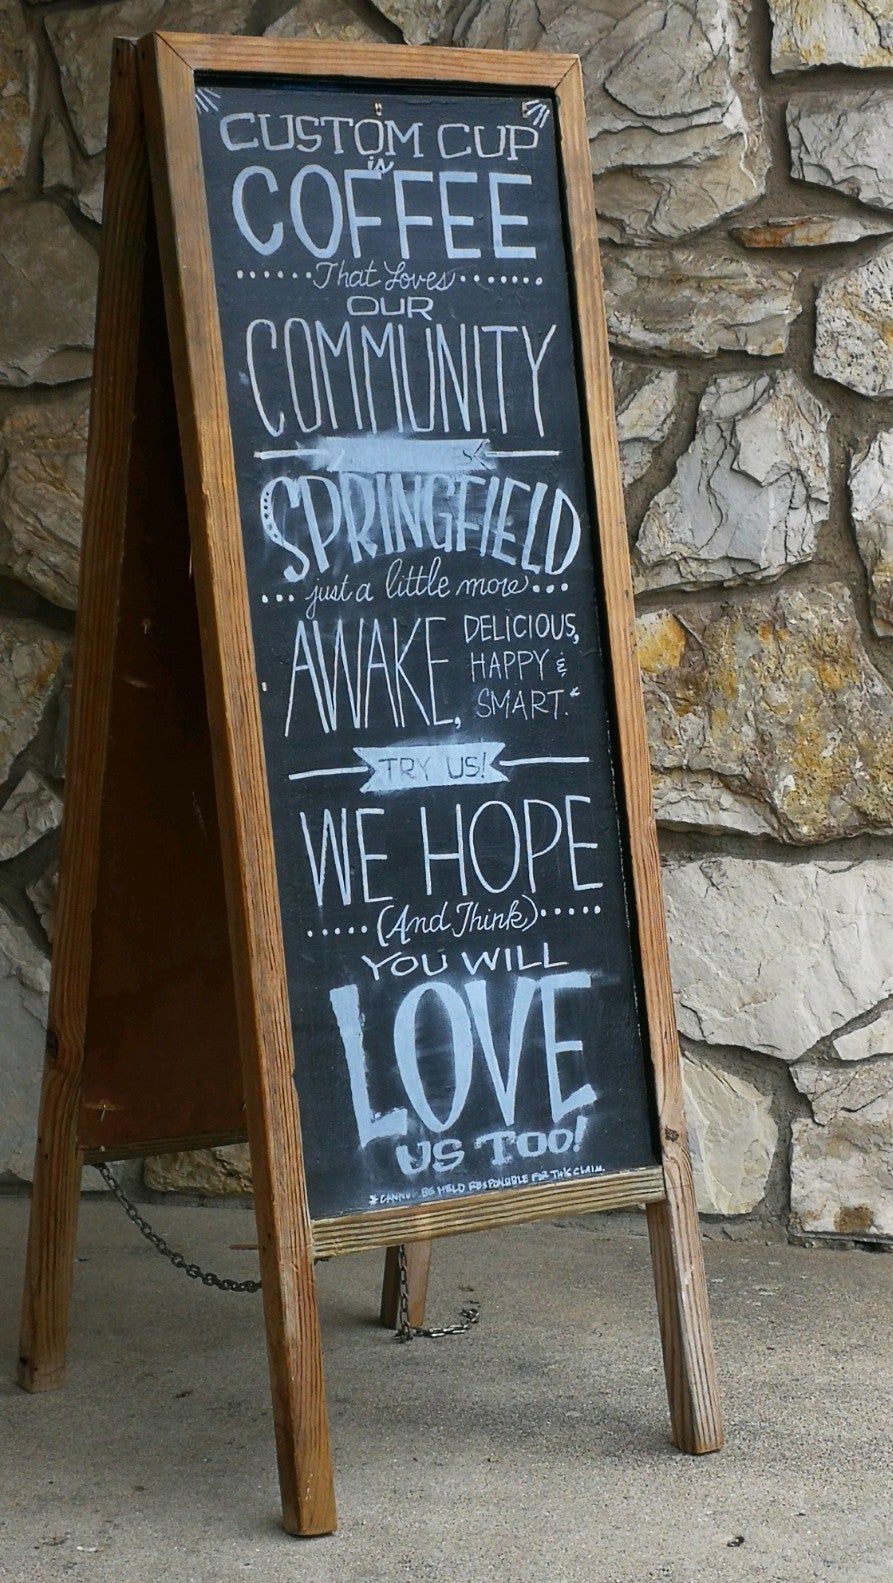 CUSTOM CUP
is
COFFEE
That Loves
OUR
COMMUNITY
SPRINGFIELD
just a little more
AWAKE, DELICIOUS,
HAPPY &
SMART.*
TRY US!
WE HOPE
(And Think)
YOU WILL
LOVE
US TOO!
* CANNOT BE HELD RESPONSIBLE FOR THIS CLAIM.